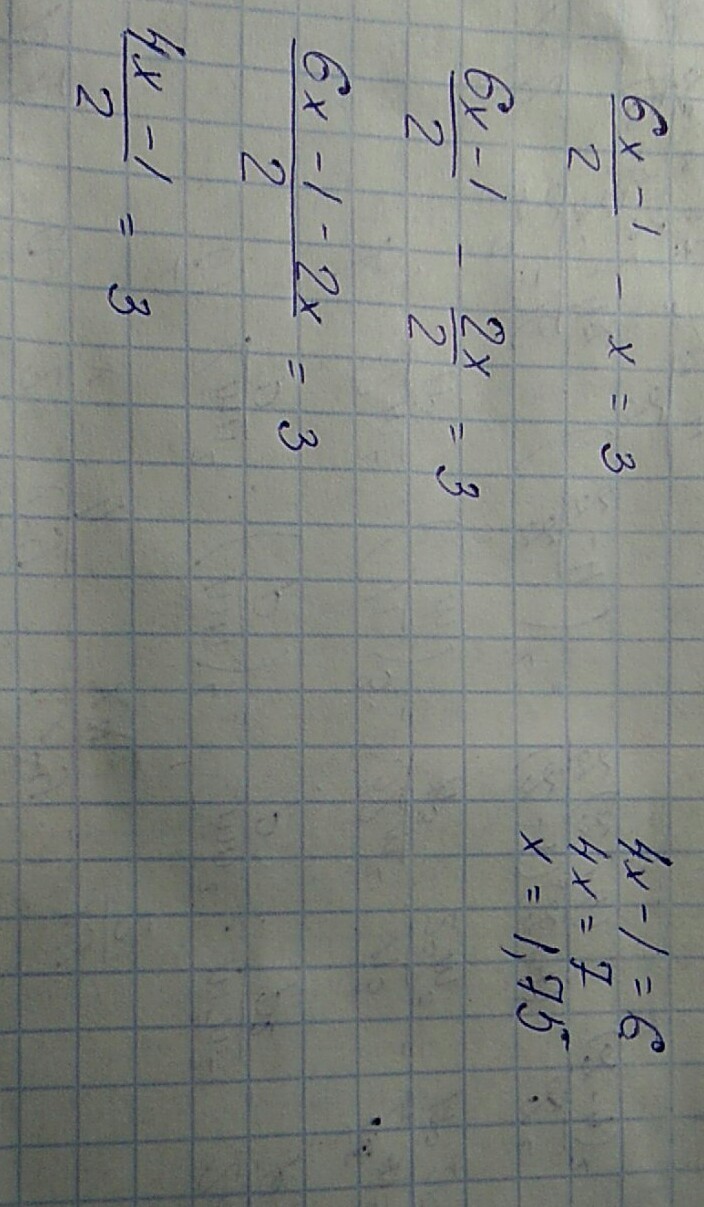 (6x - 1)/2 - x = 3
(6x - 1)/2 - 2x/2 = 3
(6x - 1 - 2x)/2 = 3
(4x - 1)/2 = 3
4x - 1 = 6
4x = 7
x = 1,75